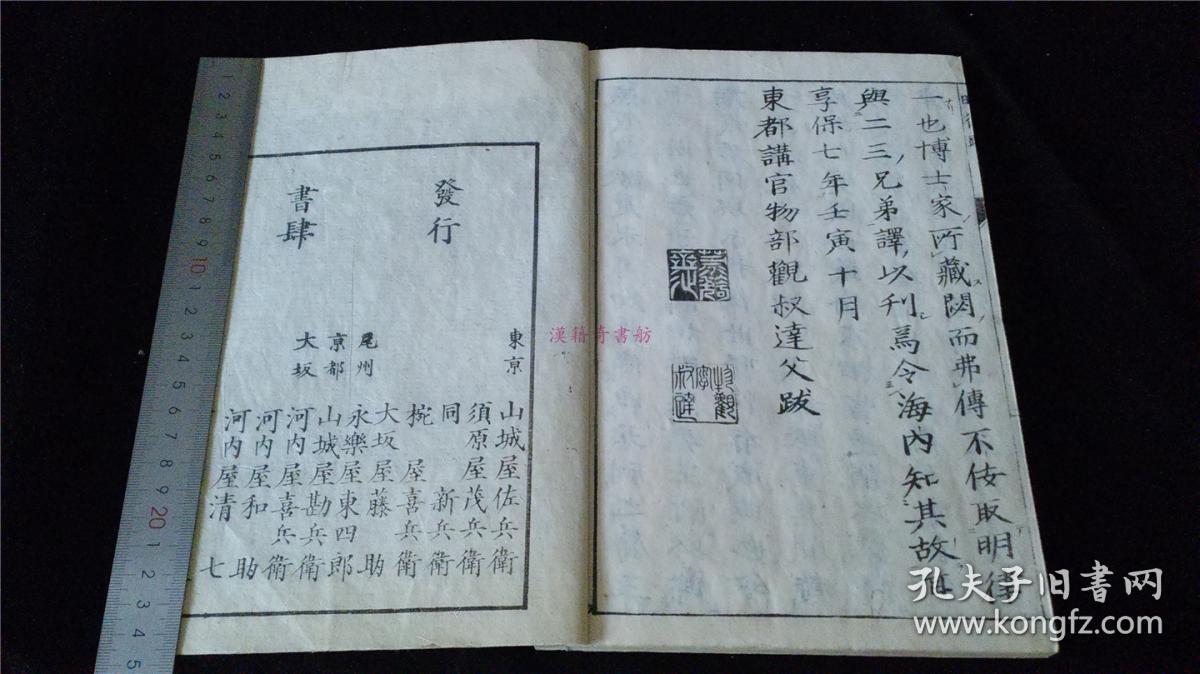 一也博士家所藏閟而弗傳不佞取明律
與二三兄弟譯以刋焉令海內知其故耳
享保七年壬寅十月
東都講官物部觀叔達父跋
發行
書肆
東京
山城屋佐兵衛
須原屋茂兵衛
同 新兵衛
椀屋喜兵衛
大坂屋藤助
尾州
永樂屋東四郎
京都
山城屋勘兵衛
大坂
河内屋喜兵衛
河内屋和助
河内屋清七
漢籍奇書舫
孔夫子旧书网
www.kongfz.com